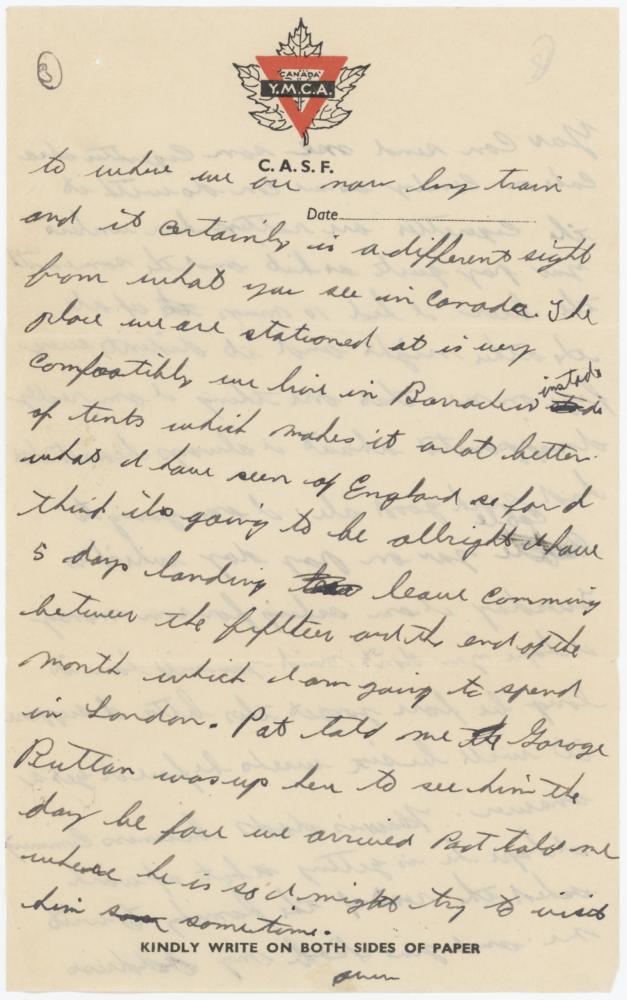 3
CANADA
Y.M.C.A.
C. A. S. F.
to where we are now by train
Date
and it certainly is a different sight
from what you see in Canada. The
place we are stationed at is very
comfortibly we live in Barracks instade
of tents which makes it alot better.
what I have seen of England so far I
think its going to be allright I have
5 days landing leave comming
between the fifteen and the end of the
month which I am going to spend
in London. Pat told me Goroge
Ruttan was up here to see him the
day be fore we arrived Pat told me
where he is so I might try to visit
him some sometime.
KINDLY WRITE ON BOTH SIDES OF PAPER
over